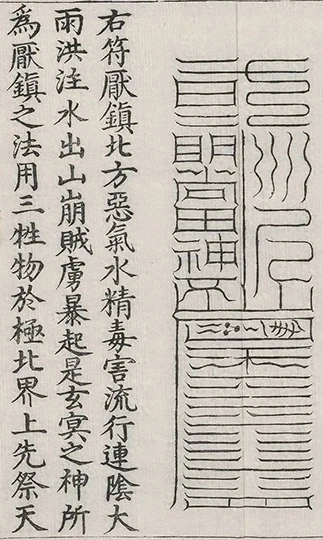 右符厭鎮北方惡氣水精毒害流行連陰大
雨洪注水出山崩賊虜暴起是玄冥之神所
為厭鎮之法用三牲物於極北界上先祭天